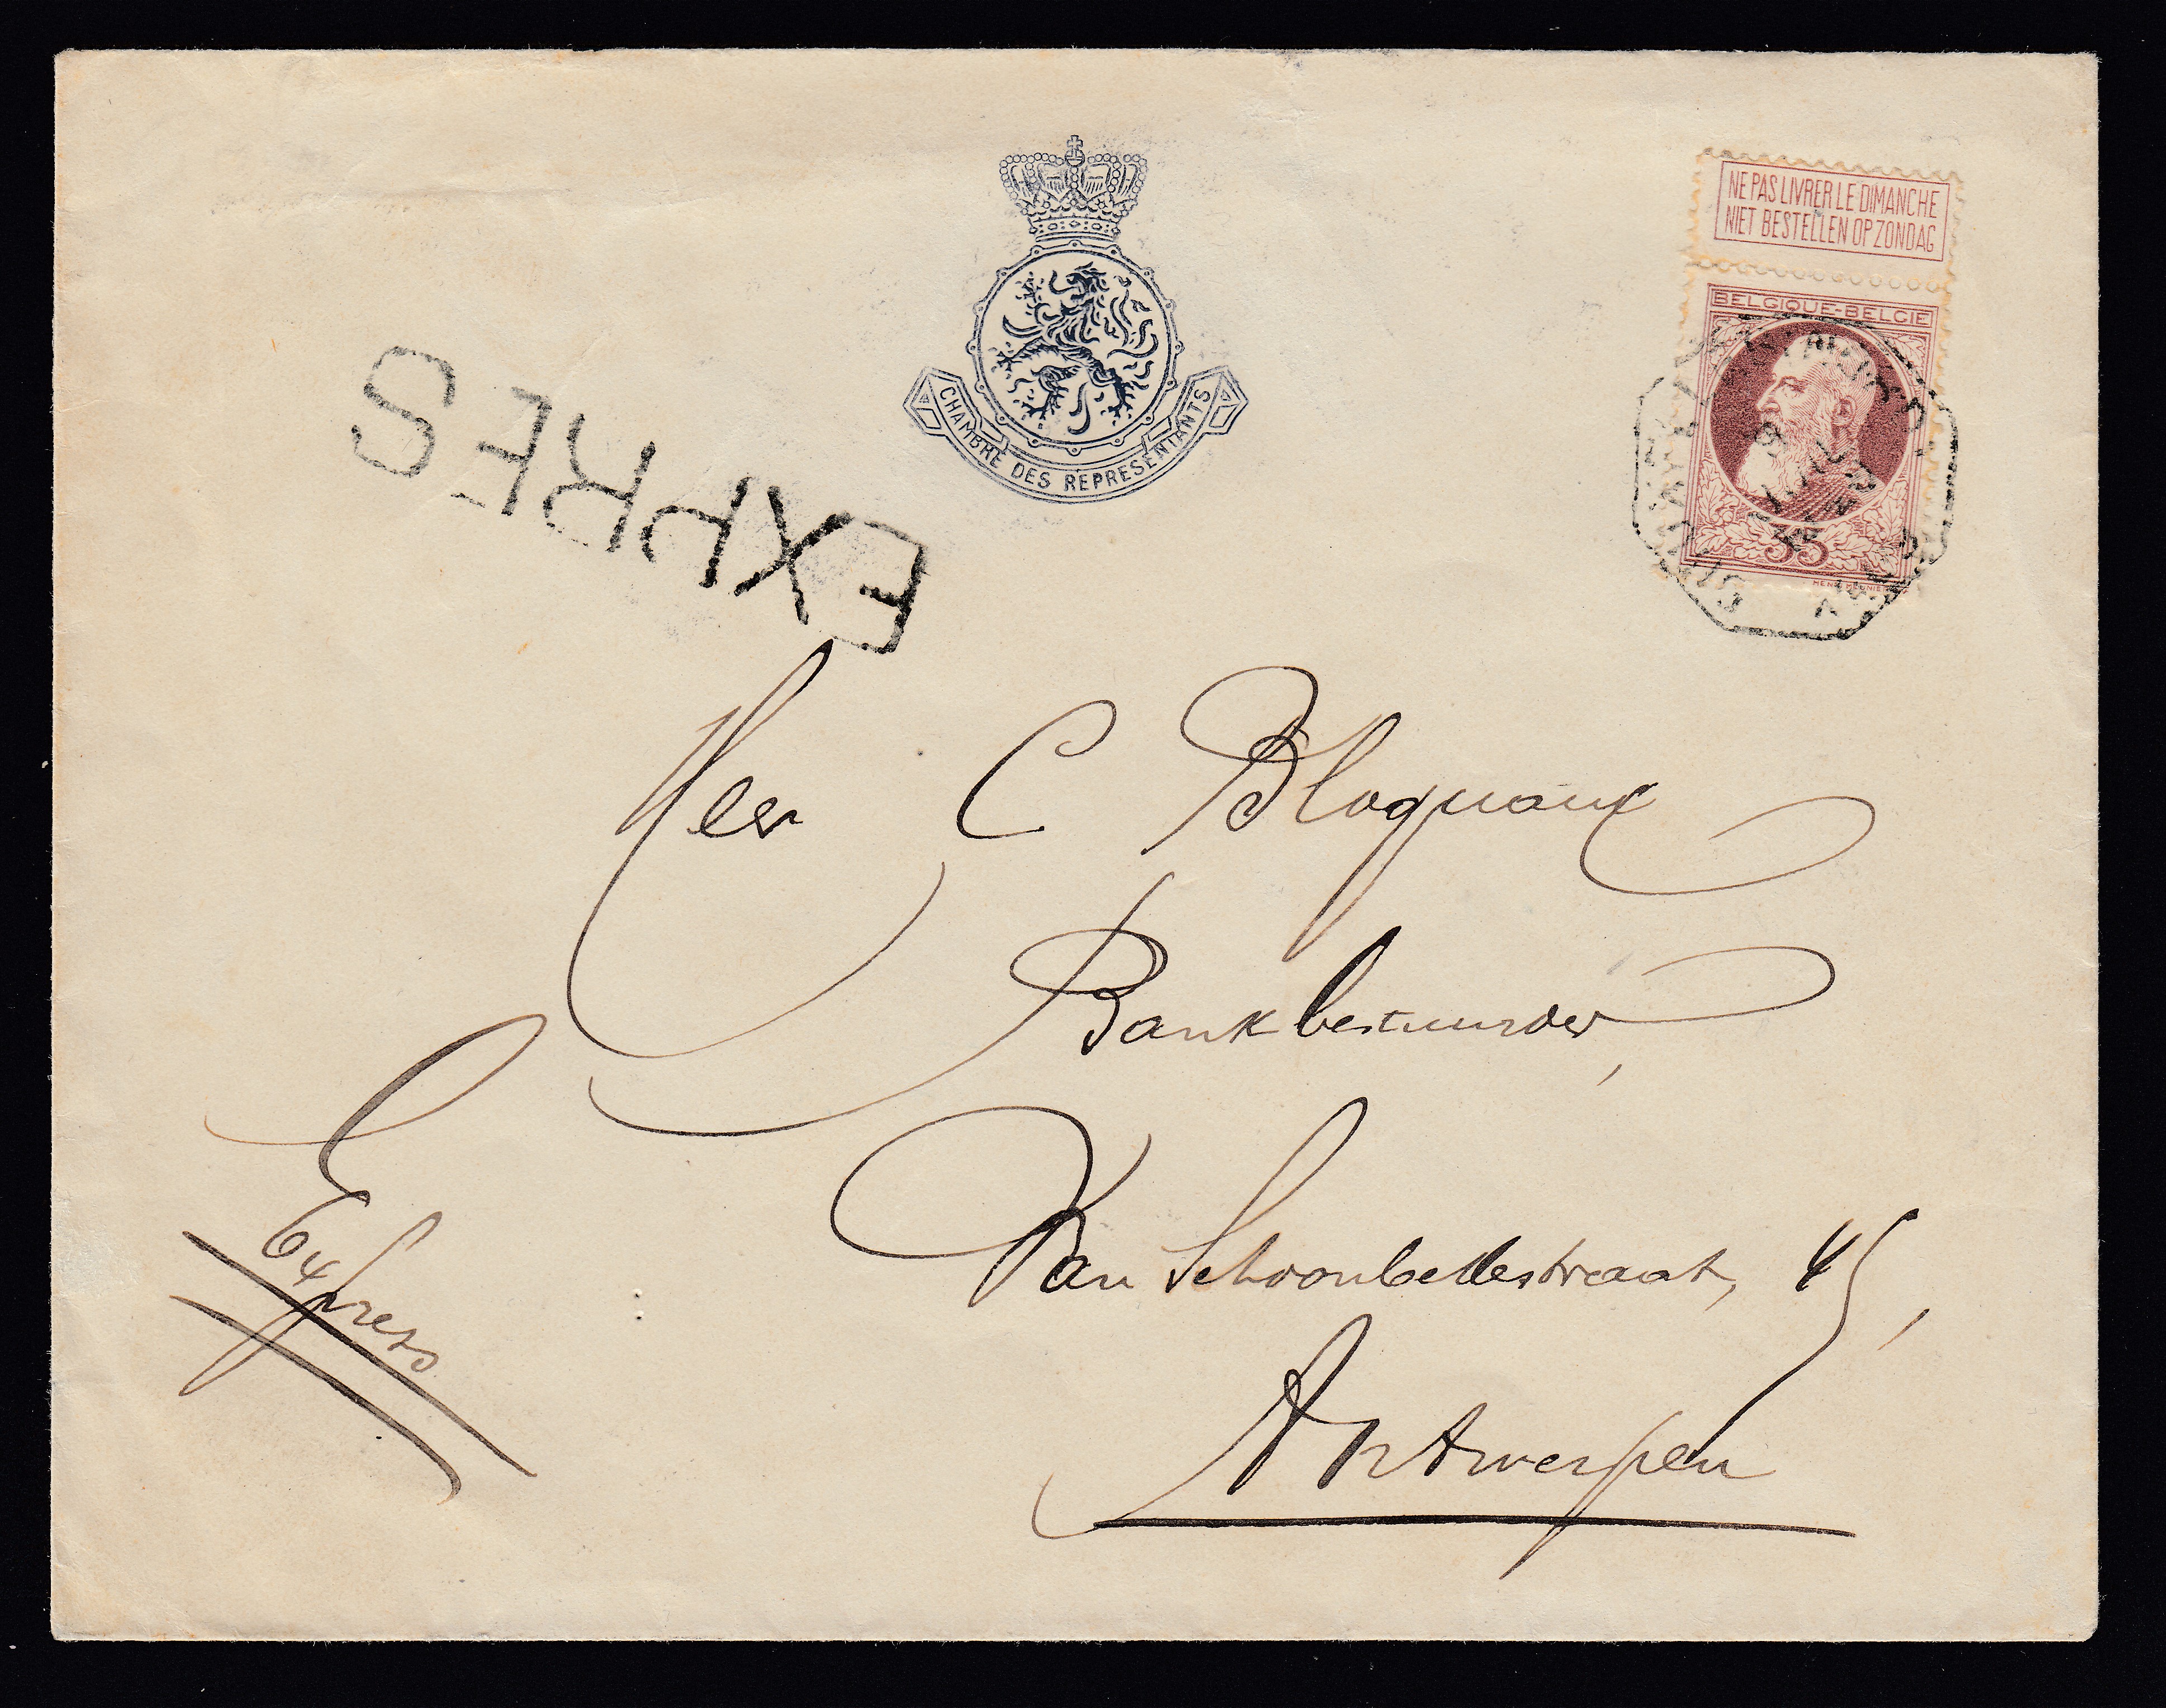 CHAMBRE DES REPRESENTANTS
NE PAS LIVRER LE DIMANCHE
NIET BESTELLEN OP ZONDAG
BELGIQUE-BELGIE
35
EXPRES
Heer C Bloquaux
Bankbestuurder,
Van Schoonbekestraat, 45,
Antwerpen
Express